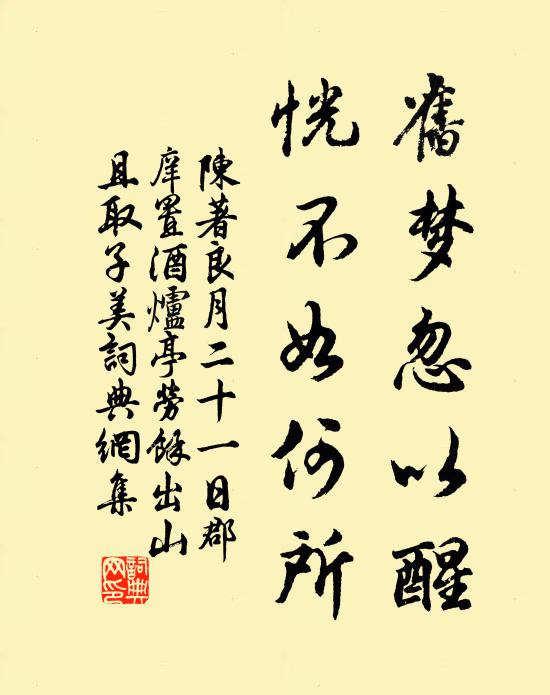 舊梦忽以醒
恍不知何所
陳著良月二十一日郡
庠置酒爐亭勞餘出山
且取子美詞典網集
詞典网印